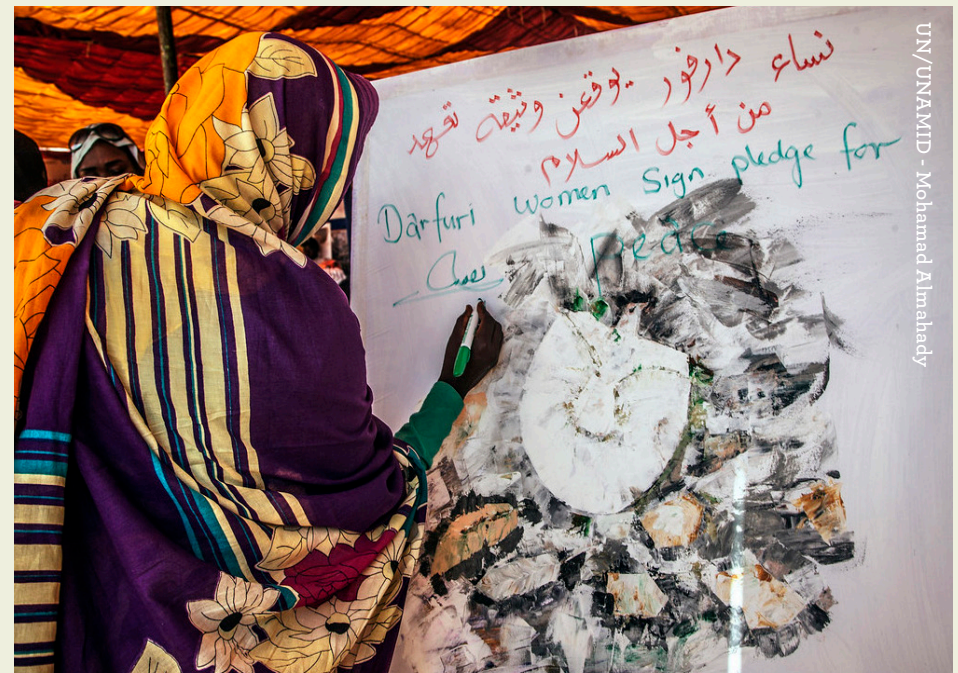 نساء دارفور يوقعن وثيقة تعهد
من أجل السلام
Darfuri women Sign pledge for
Peace
UN/UNAMID - Mohamad Almahady